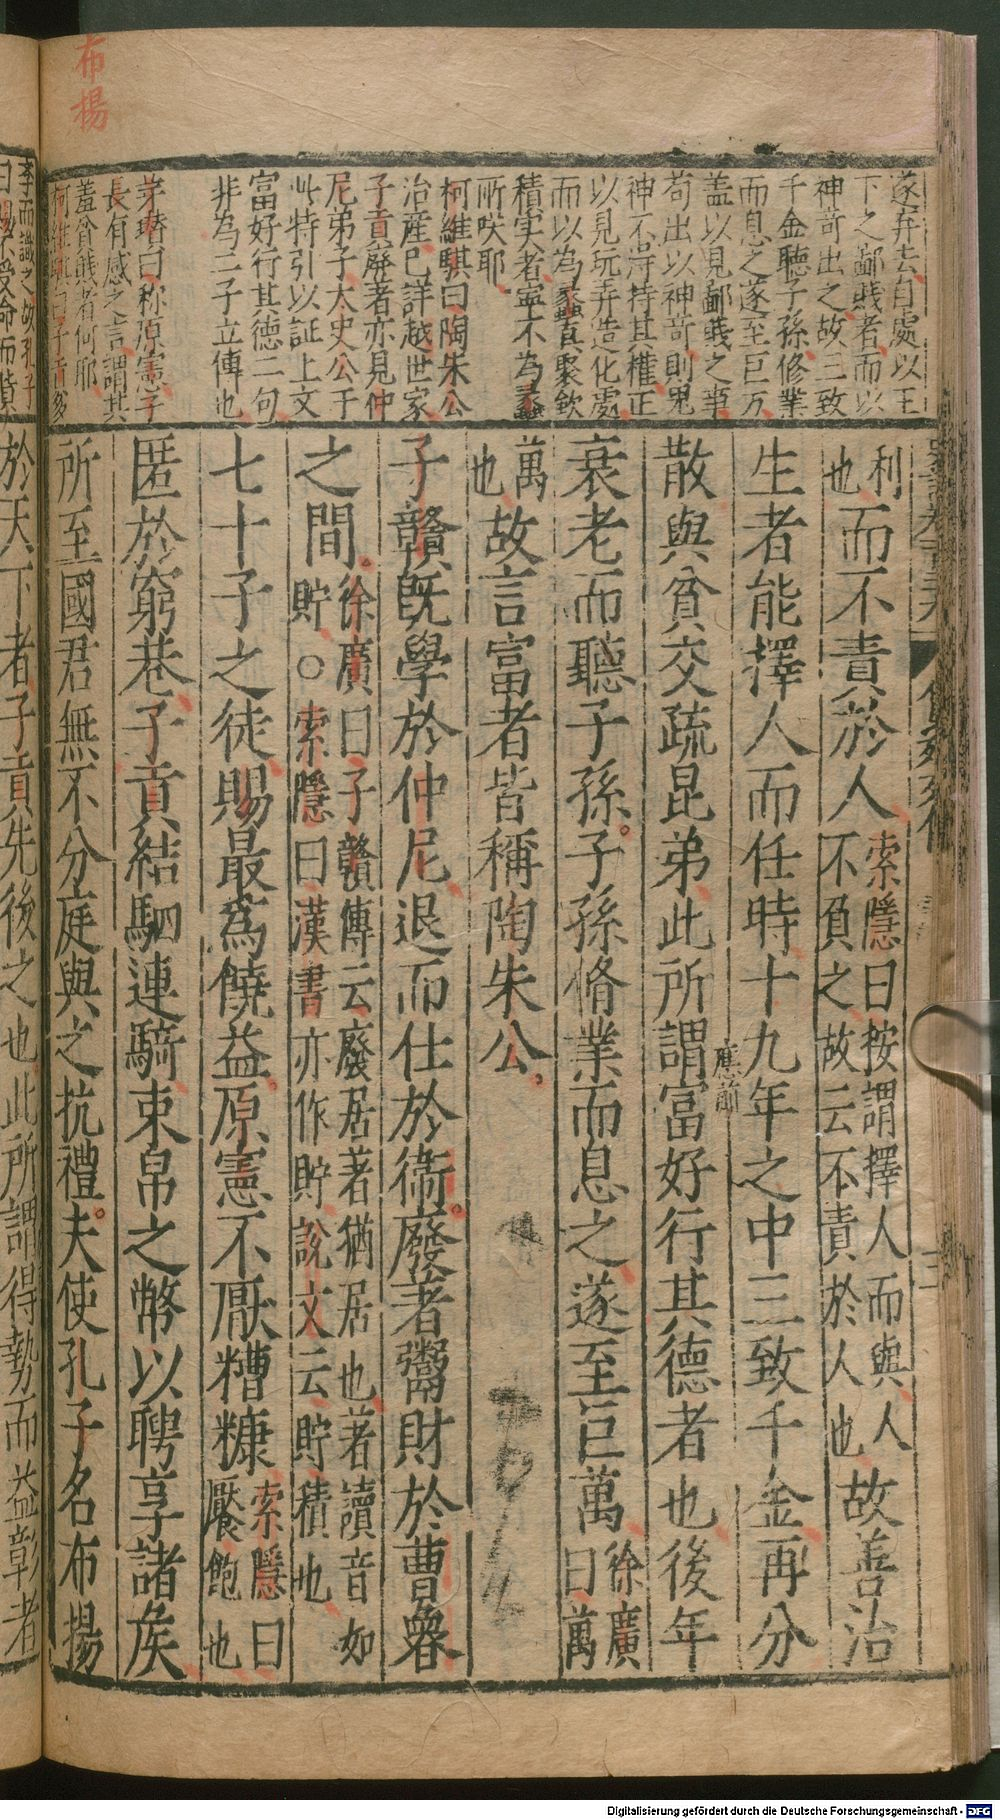 布揚
遂弃去自處以王
下之鄙賤者而以
神奇出之故三致
千金聽子孫修業
而息之遂至巨万
蓋以見鄙賤之事
苟出以神奇則鬼
神不得持其權正
以見玩弄造化處
而以為蠢直聚歛
積实者寧不為蠢
所咲耶
柯維騏曰陶朱公
治産已詳越世家
子貢廢著亦見仲
尼弟子太史公于
此特引以証上文
富好行其德二句
非為二子立傳也
茅瓚曰称原憲字
長有感之言謂其
羞貧賤者何耶
柯維騏曰子貢多
利
也
而不責於人
索隱曰按謂擇人而與人
不負之故云不責於人也
故善治
生者能擇人而任時十九年之中三致千金再分
散與貧交疏昆弟此所謂富好行其德者也後年
應前
衰老而聽子孫子孫脩業而息之遂至巨萬
徐廣
曰萬
萬
也
故言富者皆稱陶朱公
子贛既學於仲尼退而仕於衞廢著鬻財於曹魯
之間
徐廣曰子贛傳云廢居著猶居也著讀音如
貯○索隱曰漢書亦作貯說文云貯積也
七十子之徒賜最爲饒益原憲不厭糟糠
索隱曰
饜飽也
匿於窮巷子貢結駟連騎束帛之幣以聘享諸侯
所至國君無不分庭與之抗禮夫使孔子名布揚
於天下者子貢先後之也此所謂得勢而益彰者
Digitalisierung gefördert durch die Deutsche Forschungsgemeinschaft - DFG